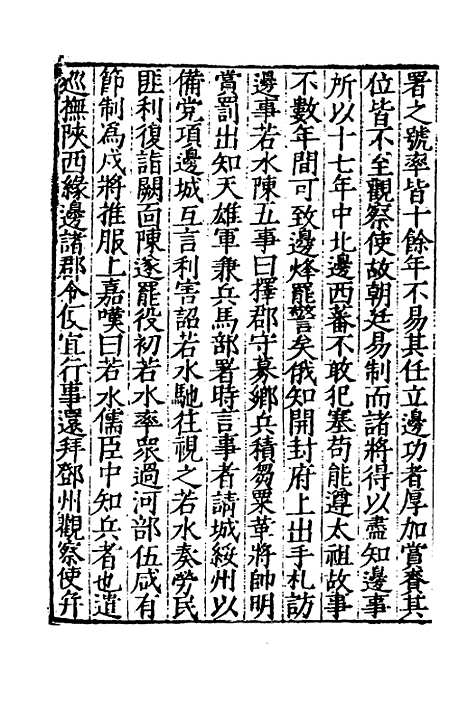 署之號率皆十餘年不易其任立邊功者厚加賞賚其
位皆不至觀察使故朝廷易制而諸將得以盡知邊事
所以十七年中北邊西蕃不敢犯塞苟能遵太祖故事
不數年間可致邊烽罷警矣俄知開封府上出手札訪
邊事若水陳五事曰擇郡守募鄉兵積芻粟革將帥明
賞罰出知天雄軍兼兵馬部署時言事者請城綏州以
備党項邊城互言利害詔若水馳往視之若水奏勞民
匪利復詣闕面陳遂罷役初若水率衆過河部伍咸有
節制為戍將推服上嘉嘆曰若水儒臣中知兵者也遣
巡撫陝西緣邊諸郡令便宜行事還拜鄧州觀察使并